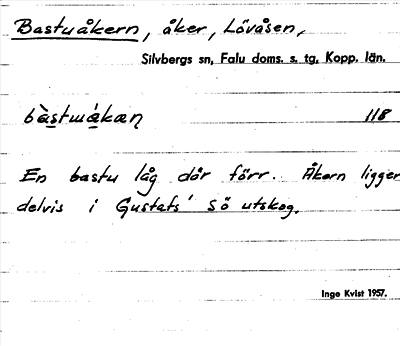 Bastuåkern, åker, Lövåsen,
Silvbergs sn, Falu doms. s. tg, Kopp. län.
bàstuu̯ákæɳ 118
En bastu låg där förr. Åkern ligger
delvis i Gustafs' sö utskog.
Inge Kvist 1957.